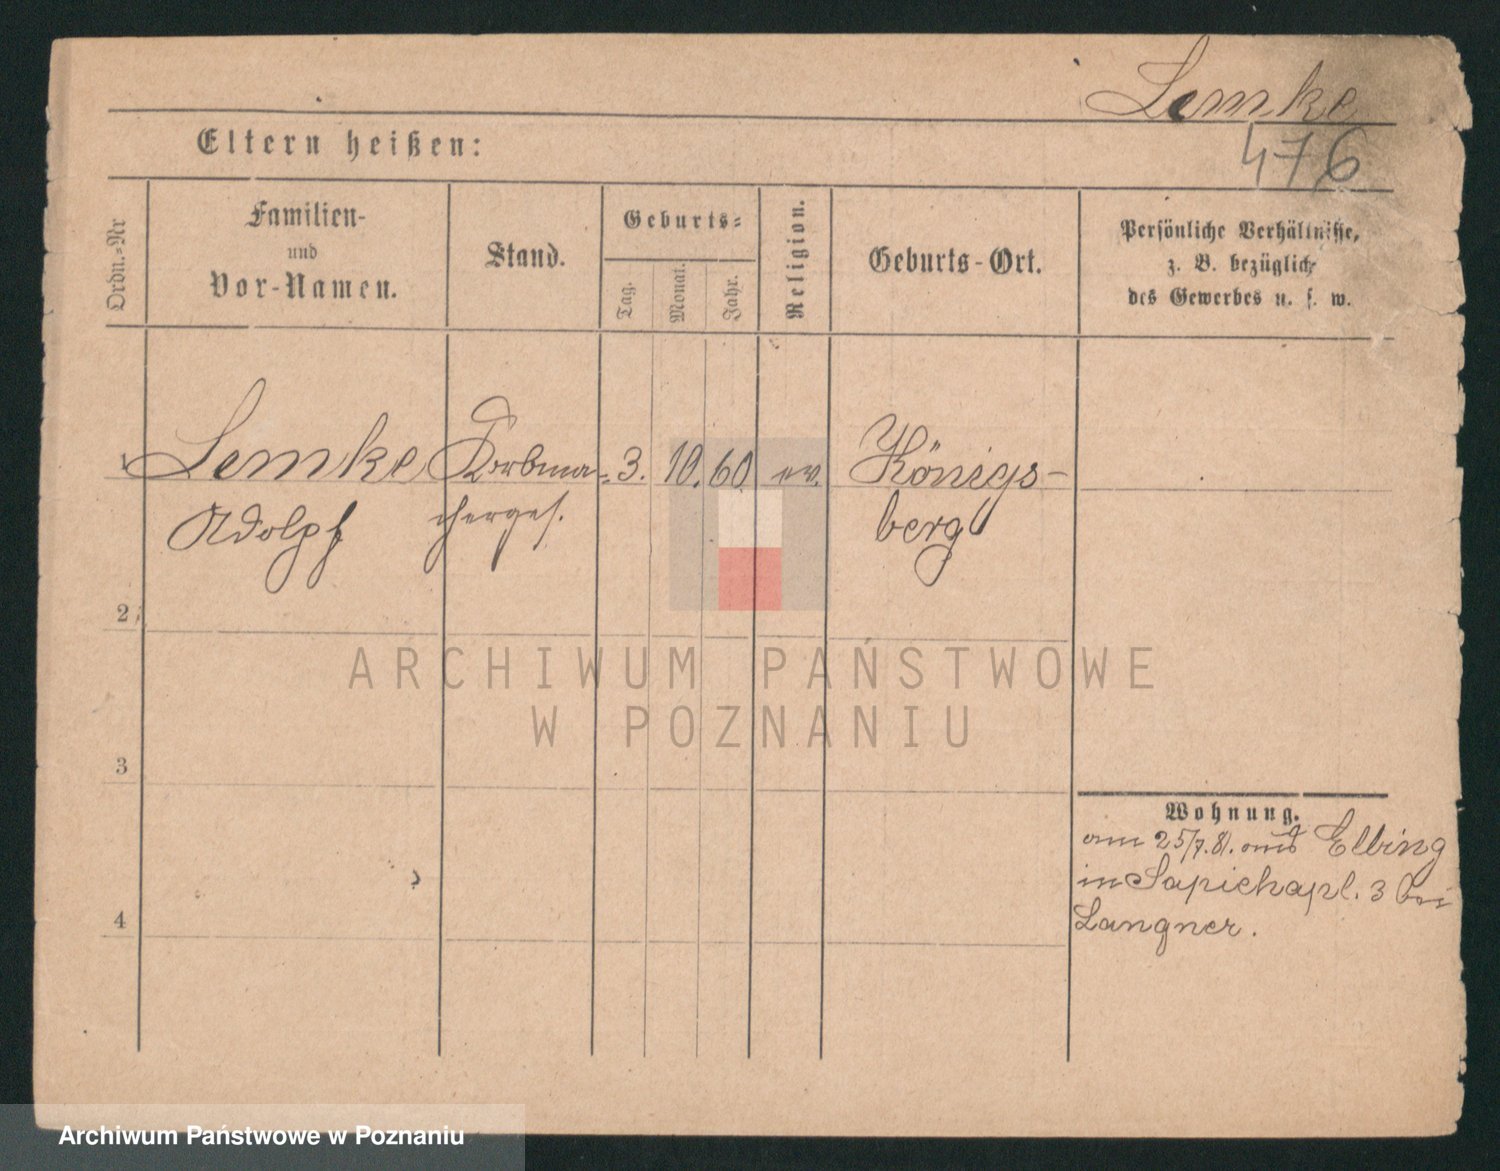 Lemke
476
Eltern heißen:
Ordn.-Nr
Familien-
und
Vor-Namen.
Stand.
Geburts-
Tag.
Monat.
Jahr.
Religion.
Geburts-Ort.
Persönliche Verhältnisse,
z. B. bezüglich
des Gewerbes u. s. w.
1 Lemke Korbma- 3. 10. 60 ev. Königs-
Adolph cherges. berg
2
3
4
Wohnung.
am 25/7.81. aus Elbing
in Sapiehapl. 3 bei
Langner.
ARCHIWUM PAŃSTWOWE
W POZNANIU
Archiwum Państwowe w Poznaniu